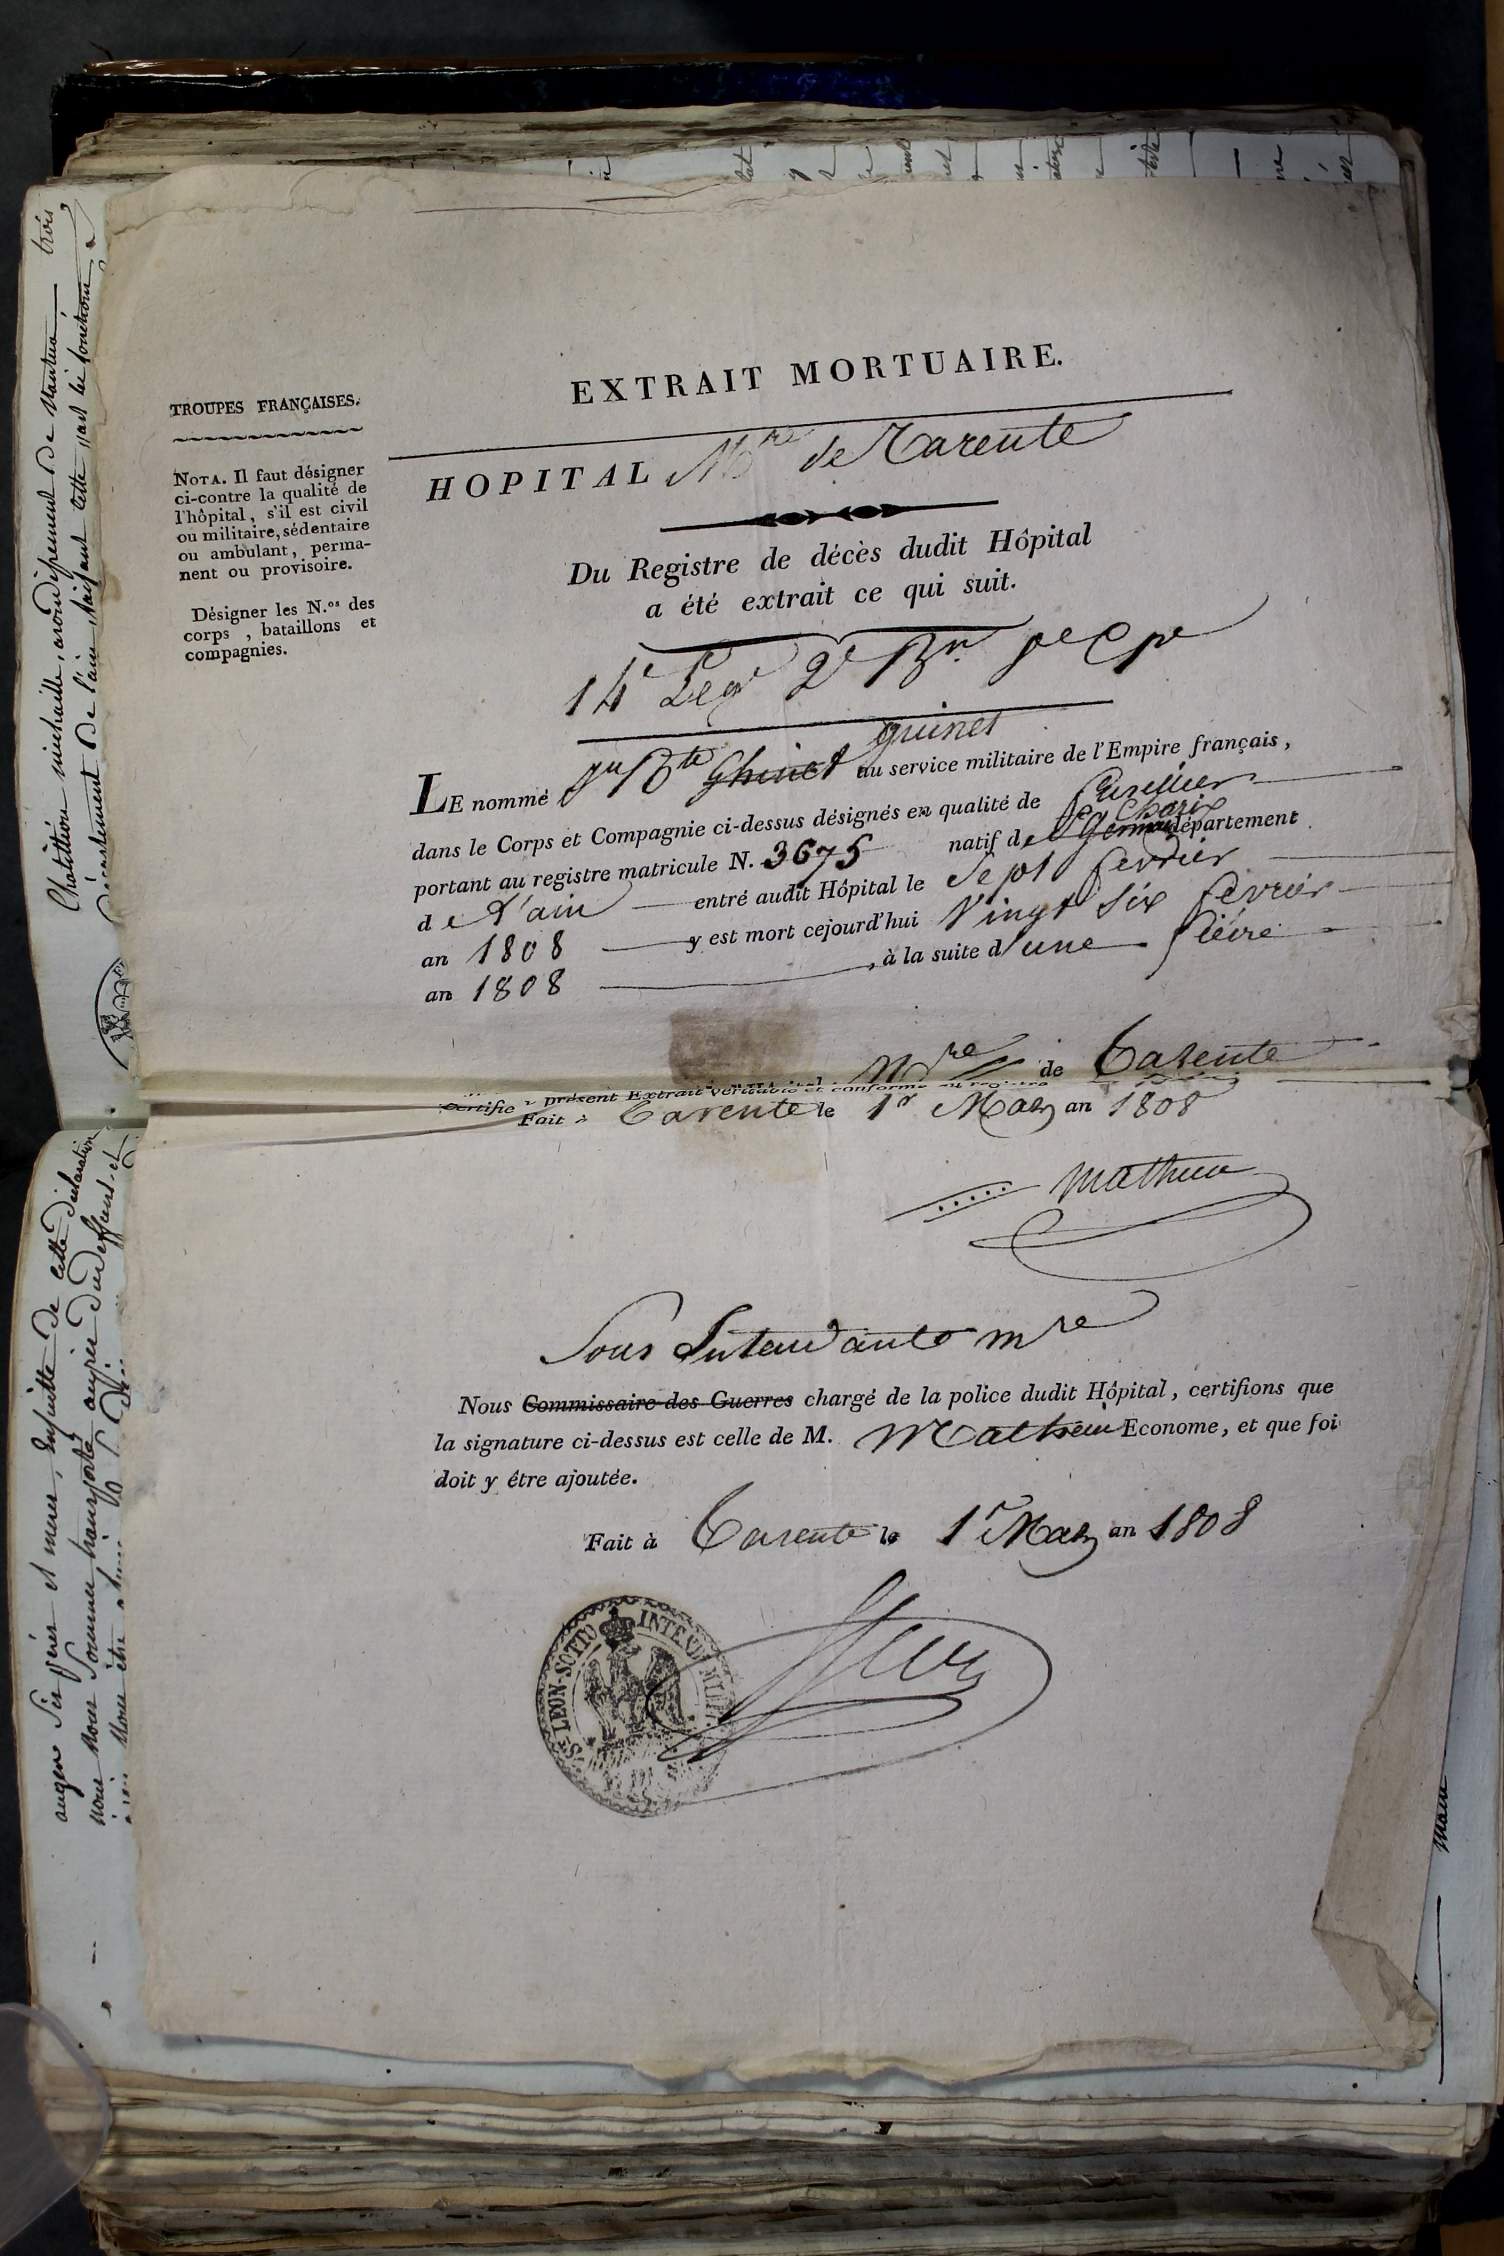 EXTRAIT MORTUAIRE.
TROUPES FRANÇAISES.
NOTA. Il faut désigner
ci-contre la qualité de
l'hôpital, s'il est civil
ou militaire, sédentaire
ou ambulant, perma-
nent ou provisoire.
Désigner les N.os des
corps, bataillons et
compagnies.
HOPITAL Mre de Tarente
Du Registre de décès dudit Hôpital
a été extrait ce qui suit.
14e Legr 2e Bn
guinet
LE nommé Jn Bte Ghinet au service militaire de l'Empire français,
dans le Corps et Compagnie ci-dessus désignés en qualité de fusellier
Charix
portant au registre matricule N. 3675 natif de St Germain département
de L'ain entré audit Hôpital le Sept fevrier
an 1808 y est mort cejourd'hui Vingt Six fevrier
an 1808, à la suite d'une fiévre
Mre de Tarente
certifie présent Extrait véritable et conforme au registre
Fait à Tarente le 1er Mars an 1808
Mathieu
Sous Intendante mre
Nous Commissaire des Guerres chargé de la police dudit Hôpital, certifions que
la signature ci-dessus est celle de M. Mathieu Econome, et que foi
doit y être ajoutée.
Fait à Tarente le 1r Mars an 1808
St LEON-SOTTO INTEND. MILIT.
trois
Chatillon michaille, arrondissement de Nantua,
Département de l'ain, faisant cette
de cette déclaration
nous nous sommes transporté auprès du deffunt et
maire